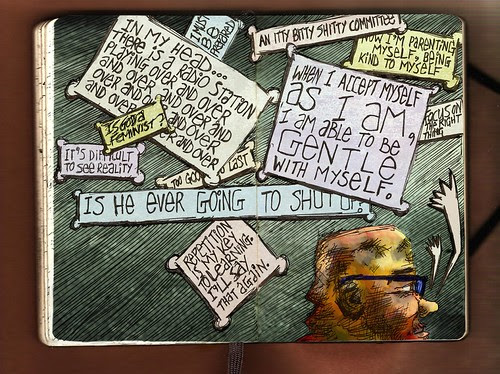 IN MY HEAD...
THERE IS A
RADIO STATION
PLAYING OVER AND OVER
AND OVER AND OVER
AND OVER AND OVER AND
AND OVER
AND OVER
I MUST
BE
PREPARED
AN ITTY BITTY SHITTY COMMITTEE
NOW I'M PARENTING
MYSELF, BEING
KIND TO MYSELF
WHEN I ACCEPT MYSELF
AS I AM,
I AM ABLE TO BE
GENTLE
WITH MYSELF.
FOCUS ON
THE RIGHT
THING
IS GOD A
FEMINIST?
IT'S DIFFICULT
TO SEE REALITY.
TOO GOOD
LAST
IS HE EVER GOING TO SHUT UP?
REPETITION
IS MY KEY
TO LEARNING.
I'LL SAY
THAT AGAIN.